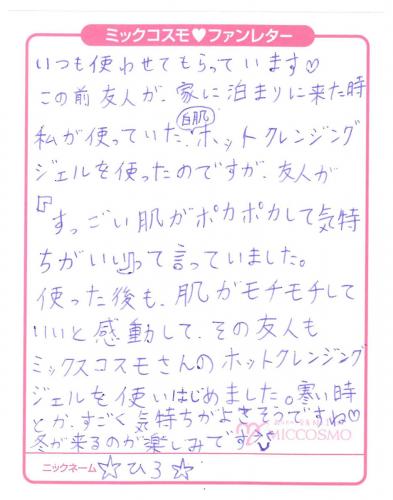 ミックコスモ♥ファンレター
いつも使わせてもらっています♡
この前友人が、家に泊まりに来た時
私が使っていた、白肌ホットクレンジング
ジェルを使ったのですが、友人が
『すっごい肌がポカポカして気持
ちがいい』って言っていました。
使った後も、肌がモチモチして
いいと感動して、その友人も
ミックスコスモさんのホットクレンジング
ジェルを使いはじめました。寒い時
とか、すごく気持ちがよさそうですね♡
冬が来るのが楽しみです
MICCOSMO
ニックネーム ☆ひろ☆